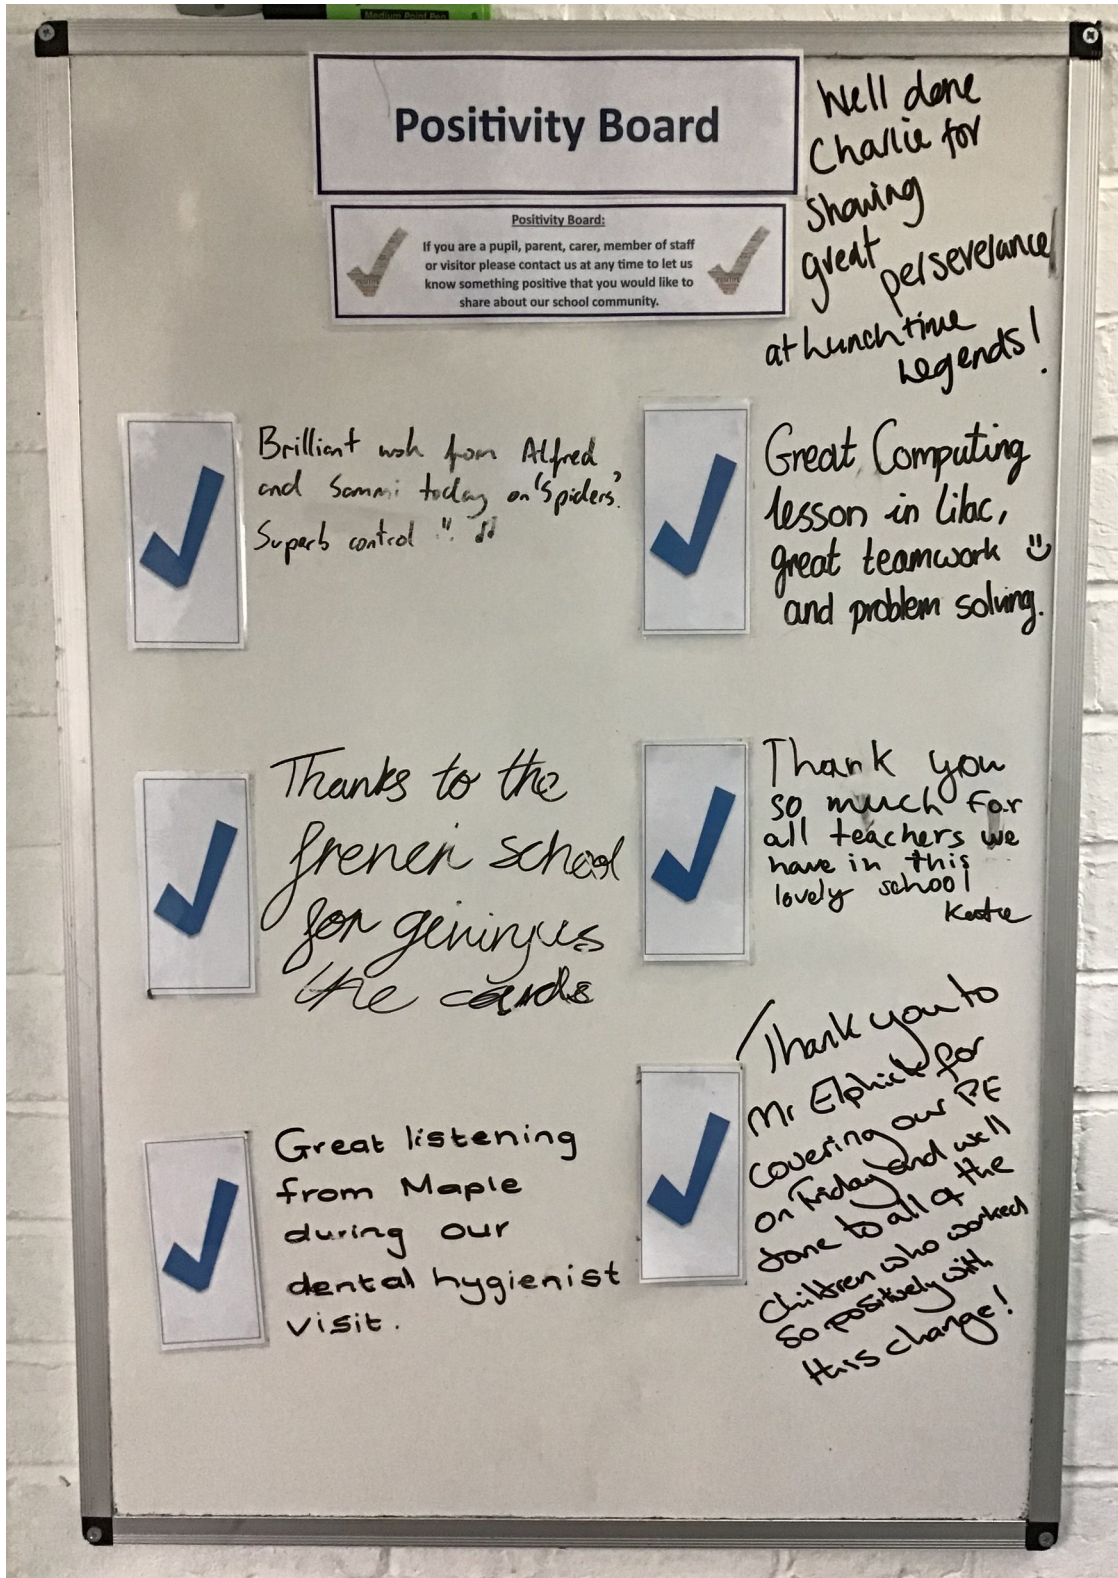 Medium Point Pen
Positivity Board
Positivity Board:
If you are a pupil, parent, carer, member of staff
or visitor please contact us at any time to let us
know something positive that you would like to
share about our school community.
Well done
Charlie for
showing
great
perseverance
at Lunchtime
Legends!
Brilliant work from Alfred
and Sammi today on 'Spiders'.
Superb control
Great Computing
lesson in Lilac,
great teamwork
and problem solving.
Thanks to the
french school
for
the cards
Thank you
so much for
all teachers we
have in this
lovely school
Katie
Great listening
from Maple
during our
dental hygienist
visit.
Thank you to
Mr Elphick for
covering our PE
on Friday and well
done to all of the
children who worked
so positively with
this change!